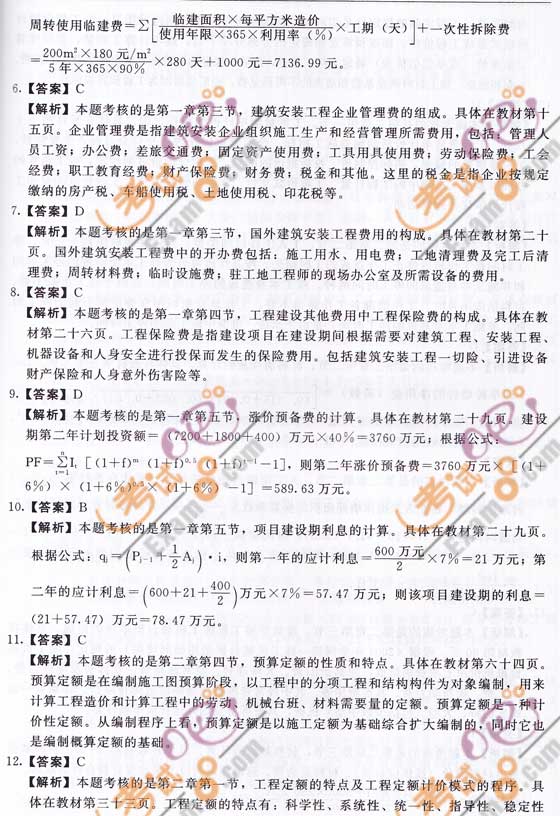 周转使用临建费=∑[临建面积×每平方米造价/使用年限×365×利用率(%)×工期(天)]+一次性拆除费
=200m²×180 元/m²/5 年×365×90%×280 天+1000 元=7136.99 元。
6.【答案】C
【解析】本题考核的是第一章第三节，建筑安装工程企业管理费的组成。具体在教材第十
五页。企业管理费是指建筑安装企业组织施工生产和经营管理所需费用，包括：管理人
员工资；办公费；差旅交通费；固定资产使用费；工具用具使用费；劳动保险费；工会
经费；职工教育经费；财产保险费；财务费；税金和其他。这里的税金是指企业按规定
缴纳的房产税、车船使用税、土地使用税、印花税等。
7.【答案】D
【解析】本题考核的是第一章第三节，国外建筑安装工程费用的构成。具体在教材第二十
页。国外建筑安装工程费中的开办费包括：施工用水、用电费；工地清理费及完工后清
理费；周转材料费；临时设施费；驻工地工程师的现场办公室及所需设备的费用。
8.【答案】C
【解析】本题考核的是第一章第四节，工程建设其他费用中工程保险费的构成。具体在教
材第二十六页。工程保险费是指建设项目在建设期间根据需要对建筑工程、安装工程、
机器设备和人身安全进行投保而发生的保险费用。包括建筑安装工程一切险、引进设备
财产保险和人身意外伤害险等。
9.【答案】D
【解析】本题考核的是第一章第五节，涨价预备费的计算。具体在教材第二十九页。建设
期第二年计划投资额=(7200+1800+400)万元×40%=3760 万元；根据公式：
PF=∑Iₜ[(1+f)ᵐ(1+f)⁰·⁵(1+f)ᵗ⁻¹-1]，则第二年涨价预备费=3760 万元×[(1+
6%)×(1+6%)⁰·⁵×(1+6%)-1]=589.63 万元。
10.【答案】B
【解析】本题考核的是第一章第五节，项目建设期利息的计算。具体在教材第二十九页。
根据公式：qⱼ=(Pⱼ₋₁+1/2Aⱼ)·i，则第一年的应计利息=600 万元/2×7%=21 万元；第
二年的应计利息=(600+21+400/2)万元×7%=57.47 万元；则该项目建设期的利息=
(21+57.47)万元=78.47 万元。
11.【答案】C
【解析】本题考核的是第二章第四节，预算定额的性质和特点。具体在教材第六十四页。
预算定额是在编制施工图预算阶段，以工程中的分项工程和结构构件为对象编制，用来
计算工程造价和计算工程中的劳动、机械台班、材料需要量的定额。预算定额是一种计
价性定额。从编制程序上看，预算定额是以施工定额为基础综合扩大编制的，同时它也
是编制概算定额的基础。
12.【答案】C
【解析】本题考核的是第二章第一节，工程定额的特点及工程定额计价模式的程序。具
体在教材第三十三页。工程定额的特点有：科学性、系统性、统一性、指导性、稳定性